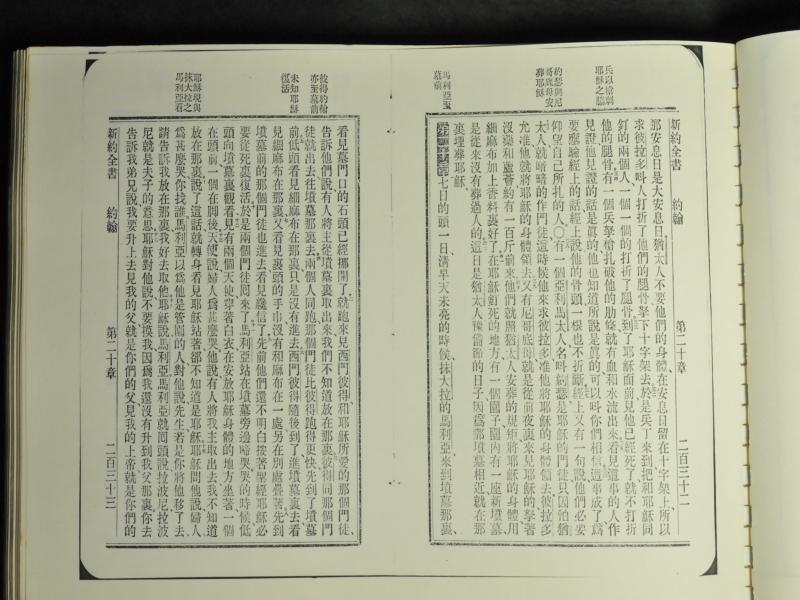 兵以槍刺
耶穌之脇
約瑟與尼
哥底母安
葬耶穌
馬利亞至
墓前
新約全書 約翰 第二十章 二百三十二
那安息日是大安息日猶太人不要他們的身體在安息日留在十字架上所以
求彼拉多叫人打折了他們的腿骨拏下十字架去於是兵丁來到把和耶穌同
釘的兩個人一個一個的打折了腿骨到了耶穌面前見他已經死了就不打折
他的腿骨有一個兵拏槍扎破他的肋條就有血和水流出來看見這事的人作
見證他見證的話是眞的他也知道所說是眞的可以叫你們相信這事成了爲
要應驗經上的話經上說他的骨頭一根也不折斷經上又有一句說他們必要
仰望自己所扎的人〇有一個亞利馬太人名叫約瑟是耶穌的門徒只因怕猶
太人就暗暗的作門徒這時候他來求彼拉多准他將耶穌的身體領去彼拉多
允准他就將耶穌的身體領去又有尼哥底母就是從前夜裏來見耶穌的拏著
沒藥和蘆薈約有一百斤前來他們就照猶太人安葬的規矩將耶穌的身體用
細麻布加上香料裹好了在耶穌釘死的地方有一個園子園內有一座新墳墓
是從來沒有葬過人的這日是猶太人豫備節的日子因爲那墳墓相近就在那
裏埋葬耶穌
第二十章七日的頭一日淸早天未亮的時候抹大拉的馬利亞來到墳墓那裏
彼得約翰
亦至墓前
未知耶穌
復活
耶穌現與
抹大拉之
馬利亞看
看見墓門口的石頭已經挪開了就跑來見西門彼得和耶穌所愛的那個門徒
告訴他們說有人將主從墳墓裏取出來我們不知道放在那裏彼得同那個門
徒就出去往墳墓那裏去兩個人同跑那個門徒比彼得跑得更快先到了墳墓
前低頭看見細麻布在那裏只是沒有進去西門彼得隨後到了進墳墓裏去看
見細麻布在那裏又看見裹頭的手巾沒有和麻布在一處另在別處疊著先到
墳墓前的那個門徒也進去看見纔信了先前他們還不明白按著聖經耶穌必
要從死裏復活於是兩個門徒回來了馬利亞站在墳墓旁邊啼哭哭的時候低
頭向墳墓裏觀看見有兩個天使穿著白衣在安放耶穌身體的地方坐著一個
在頭前一個在脚後天使說婦人爲甚麼哭他說有人將我主取出去我不知道
放在那裏說了這話就轉身看見耶穌站著卻不知道是耶穌耶穌問他說婦人
爲甚麼哭你找誰馬利亞以爲他是管園的人對他說先生若是你將他移了去
請告訴我放在那裏我好去取他耶穌說馬利亞馬利亞就囘頭說拉波尼拉波
尼就是夫子的意思耶穌對他說不要摸我因爲我還沒有升到我父那裏你去
告訴我弟兄說我要升上去見我的父就是你們的父見我的上帝就是你們的
新約全書 約翰 第二十章 二百三十三